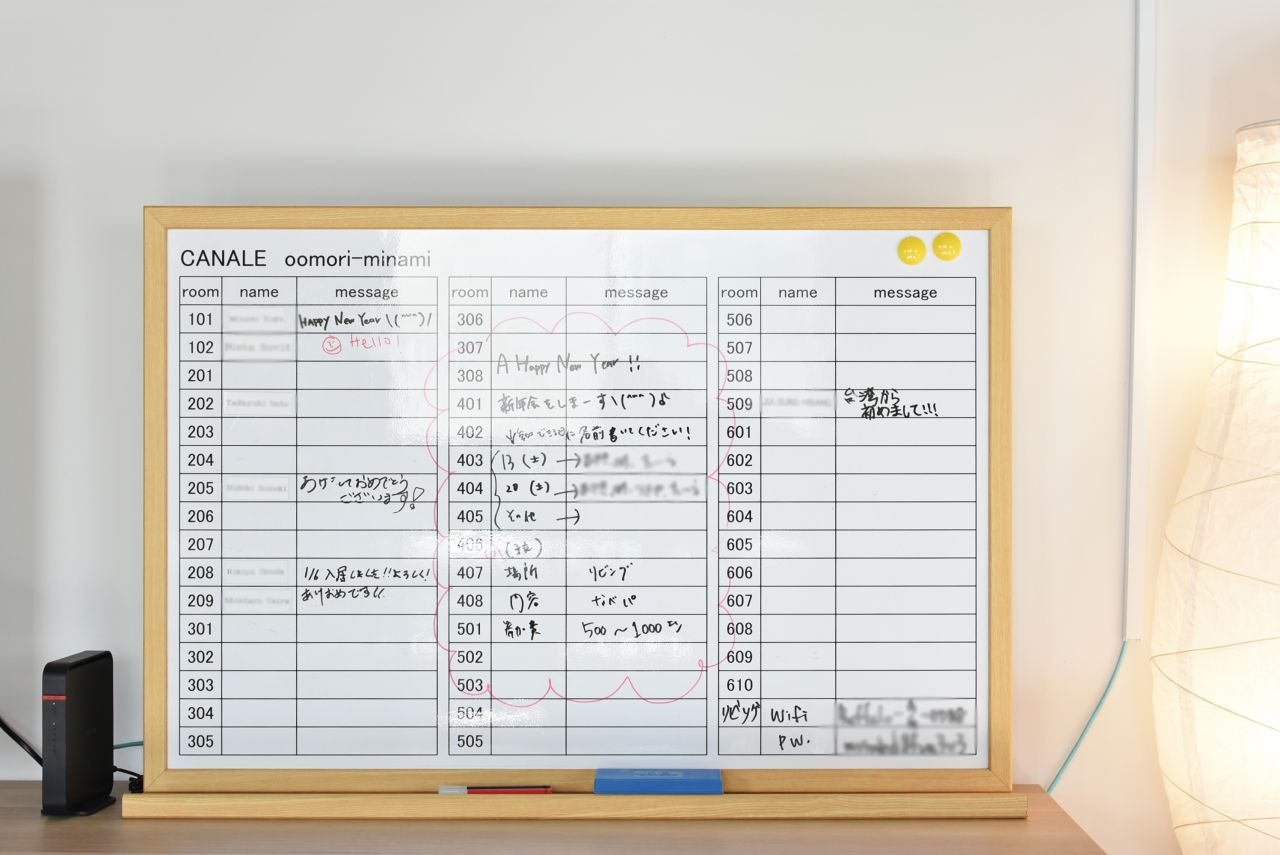 CANALE oomori-minami
room name message
101 HAPPY New Year \(^^)/
102 Hello!
201
202
203
204
205 あけましておめでとう
ございます!
206
207
208 1/6 入居しました!!よろしく!
209 ありおめです!!
301
302
303
304
305
room name message
306
307
308 A Happy New Year !!
401 新年会をしまーす\(^^)♪
402 名前書いてください!
403 13 (土) →
404 20 (土) →
405 その他 →
406 (予定)
407 場所 リビング
408 内容 なべパ
501 参加費 500〜1000円
502
503
504
505
room name message
506
507
508
509 台湾から
初めまして!!!
601
602
603
604
605
606
607
608
609
610
リビング Wifi
PW.